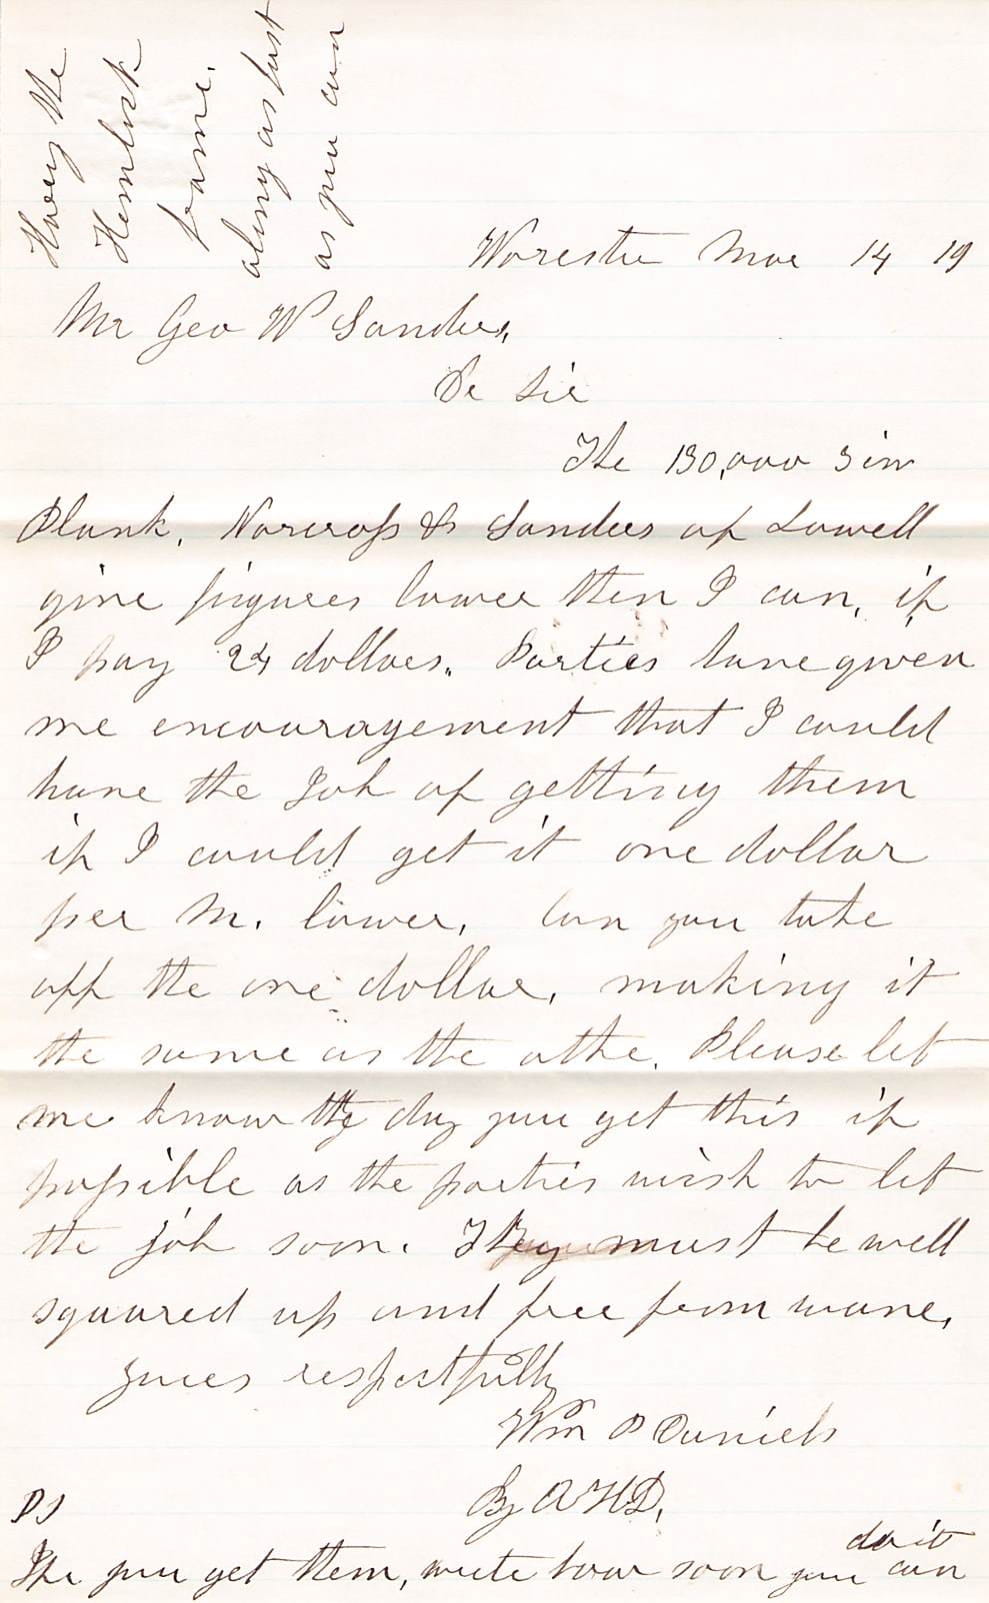 Hurry the
Hemlock
frame.
along as fast
as you can
Worcester Mar 14 19
Mr Geo W Sanders,
De Sir
The 130,000 3 in
Plank, Norcross & Sanders of Lowell
give figures lower then I can, if
I pay 24 dollars. Parties have given
me encouragement that I could
have the Job of getting them
if I could get it one dollar
per M. lower, Can you take
off the one dollar, making it
the same as the othe. Please let
me know the day you get this if
possible as the parties wish to let
the job soon. They must be well
squared up and free from wane,
yours respectfully
Wm P Daniels
By A H D.
PS
If you get them, write how soon you can
do it